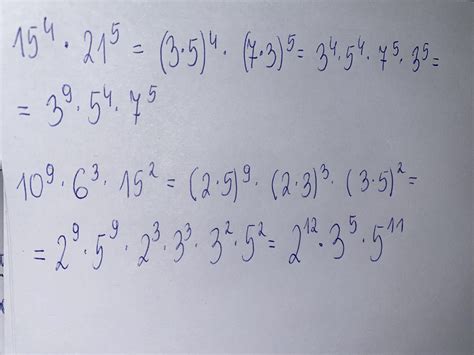 15⁴ · 21⁵ = (3·5)⁴ · (7·3)⁵ = 3⁴·5⁴·7⁵·3⁵ =
= 3⁹·5⁴·7⁵
10⁹·6³·15² = (2·5)⁹·(2·3)³·(3·5)² =
= 2⁹·5⁹·2³·3³·3²·5² = 2¹²·3⁵·5¹¹